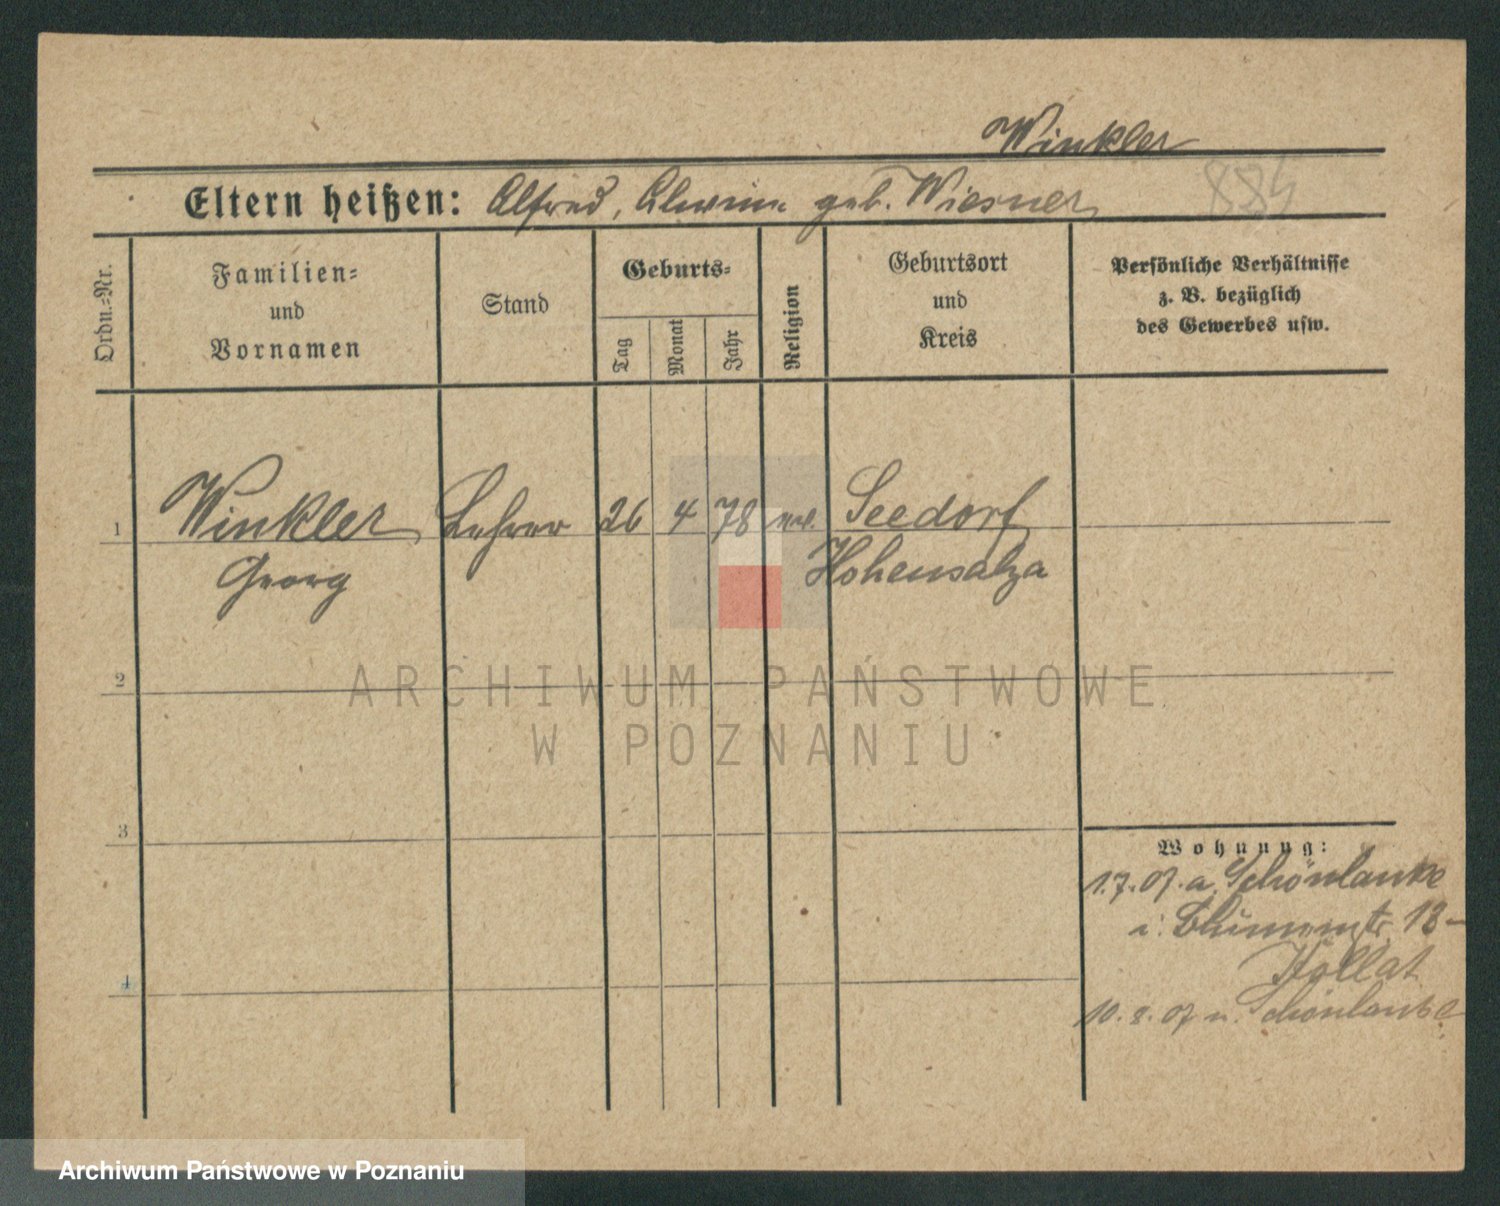 Winkler
884
Eltern heißen: Alfred, Alwine geb. Wiesner
Ordn.=Nr.
Familien=
und
Vornamen
Stand
Geburts=
Tag
Monat
Jahr
Religion
Geburtsort
und
Kreis
Persönliche Verhältnisse
z. B. bezüglich
des Gewerbes usw.
1 Winkler Lehrer 26 4 78 ev. Seedorf
Georg Hohensalza
2
ARCHIWUM PAŃSTWOWE
W POZNANIU
3
Wohnung:
1.7.07. a. Schönlanke
i. Blumenstr. 13
Kollat
4
10.8.07 n. Schönlanke
Archiwum Państwowe w Poznaniu